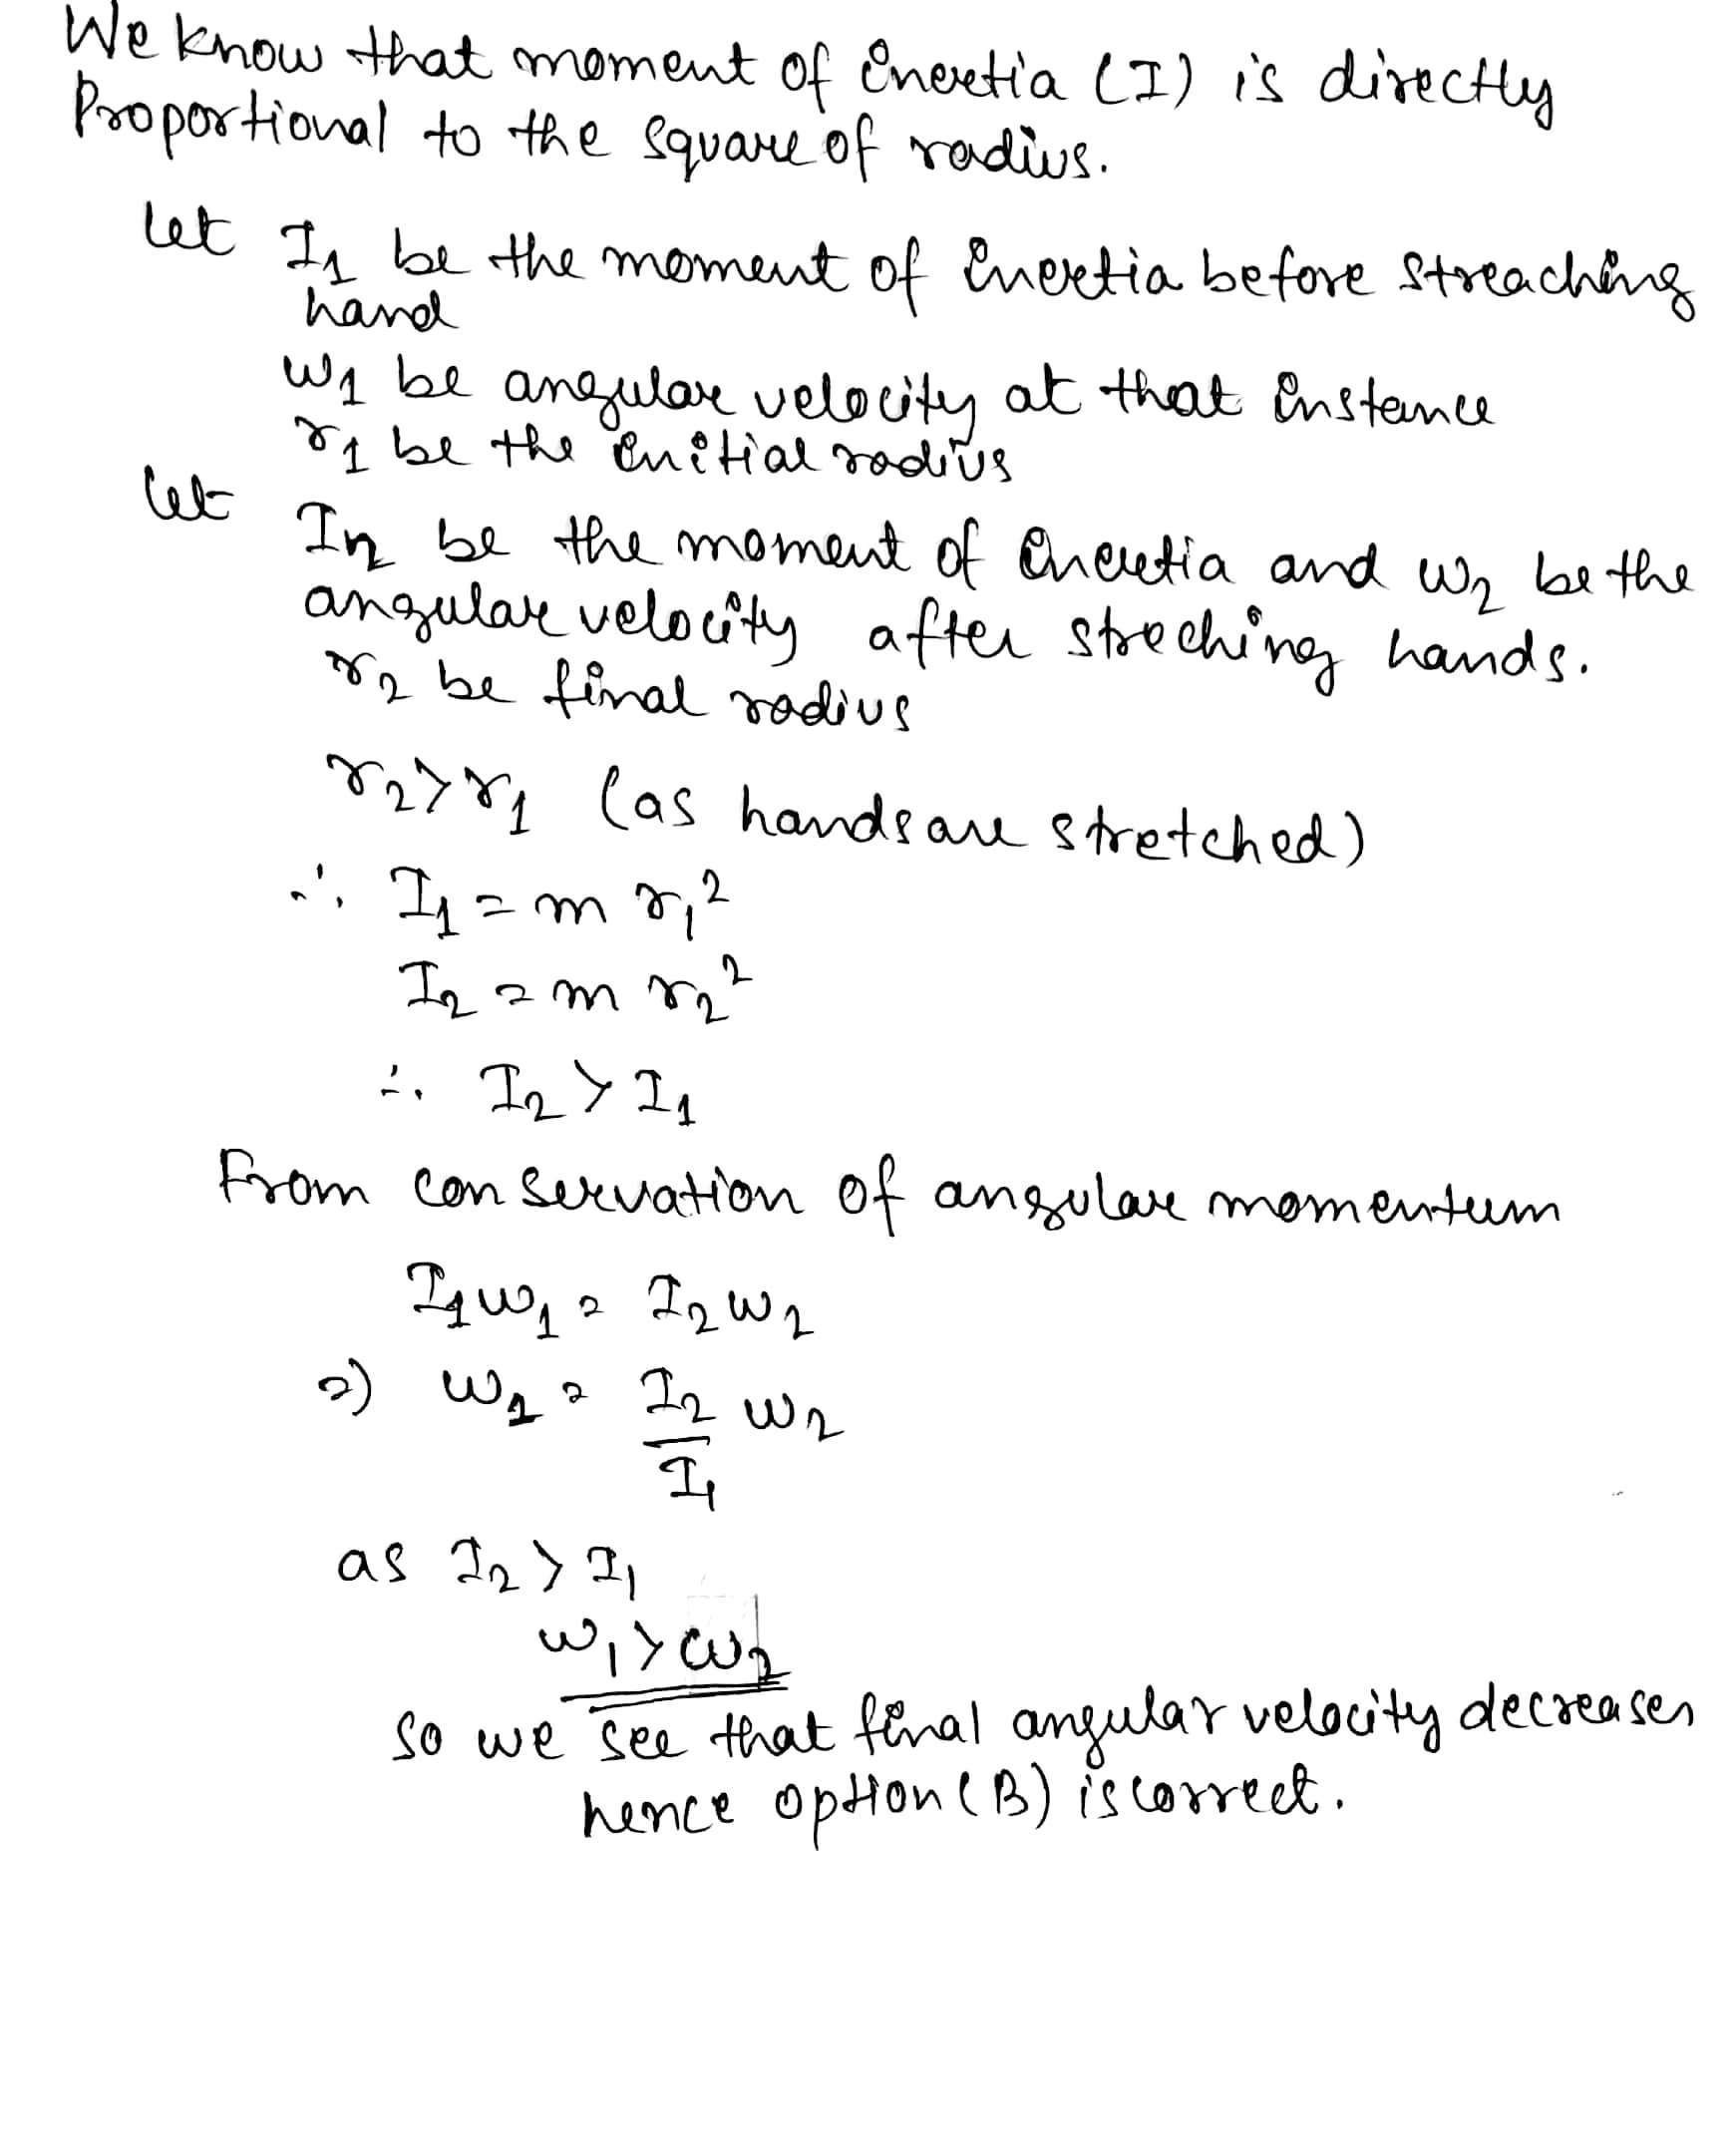 We know that moment of inertia (I) is directly
Proportional to the square of radius.
let I1 be the moment of inertia before streaching
hand
w1 be angular velocity at that instance
r1 be the initial radius
let I2 be the moment of inertia and w2 be the
angular velocity after streching hands.
r2 be final radius
r2>r1 (as hands are stretched)
∴ I1 = m r1²
I2 = m r2²
∴ I2 > I1
From conservation of angular momentum
I1w1 = I2w2
=) w1 = I2/I1 w2
as I2 > I1
w1>w2
so we see that final angular velocity decreases
hence option (B) is correct.